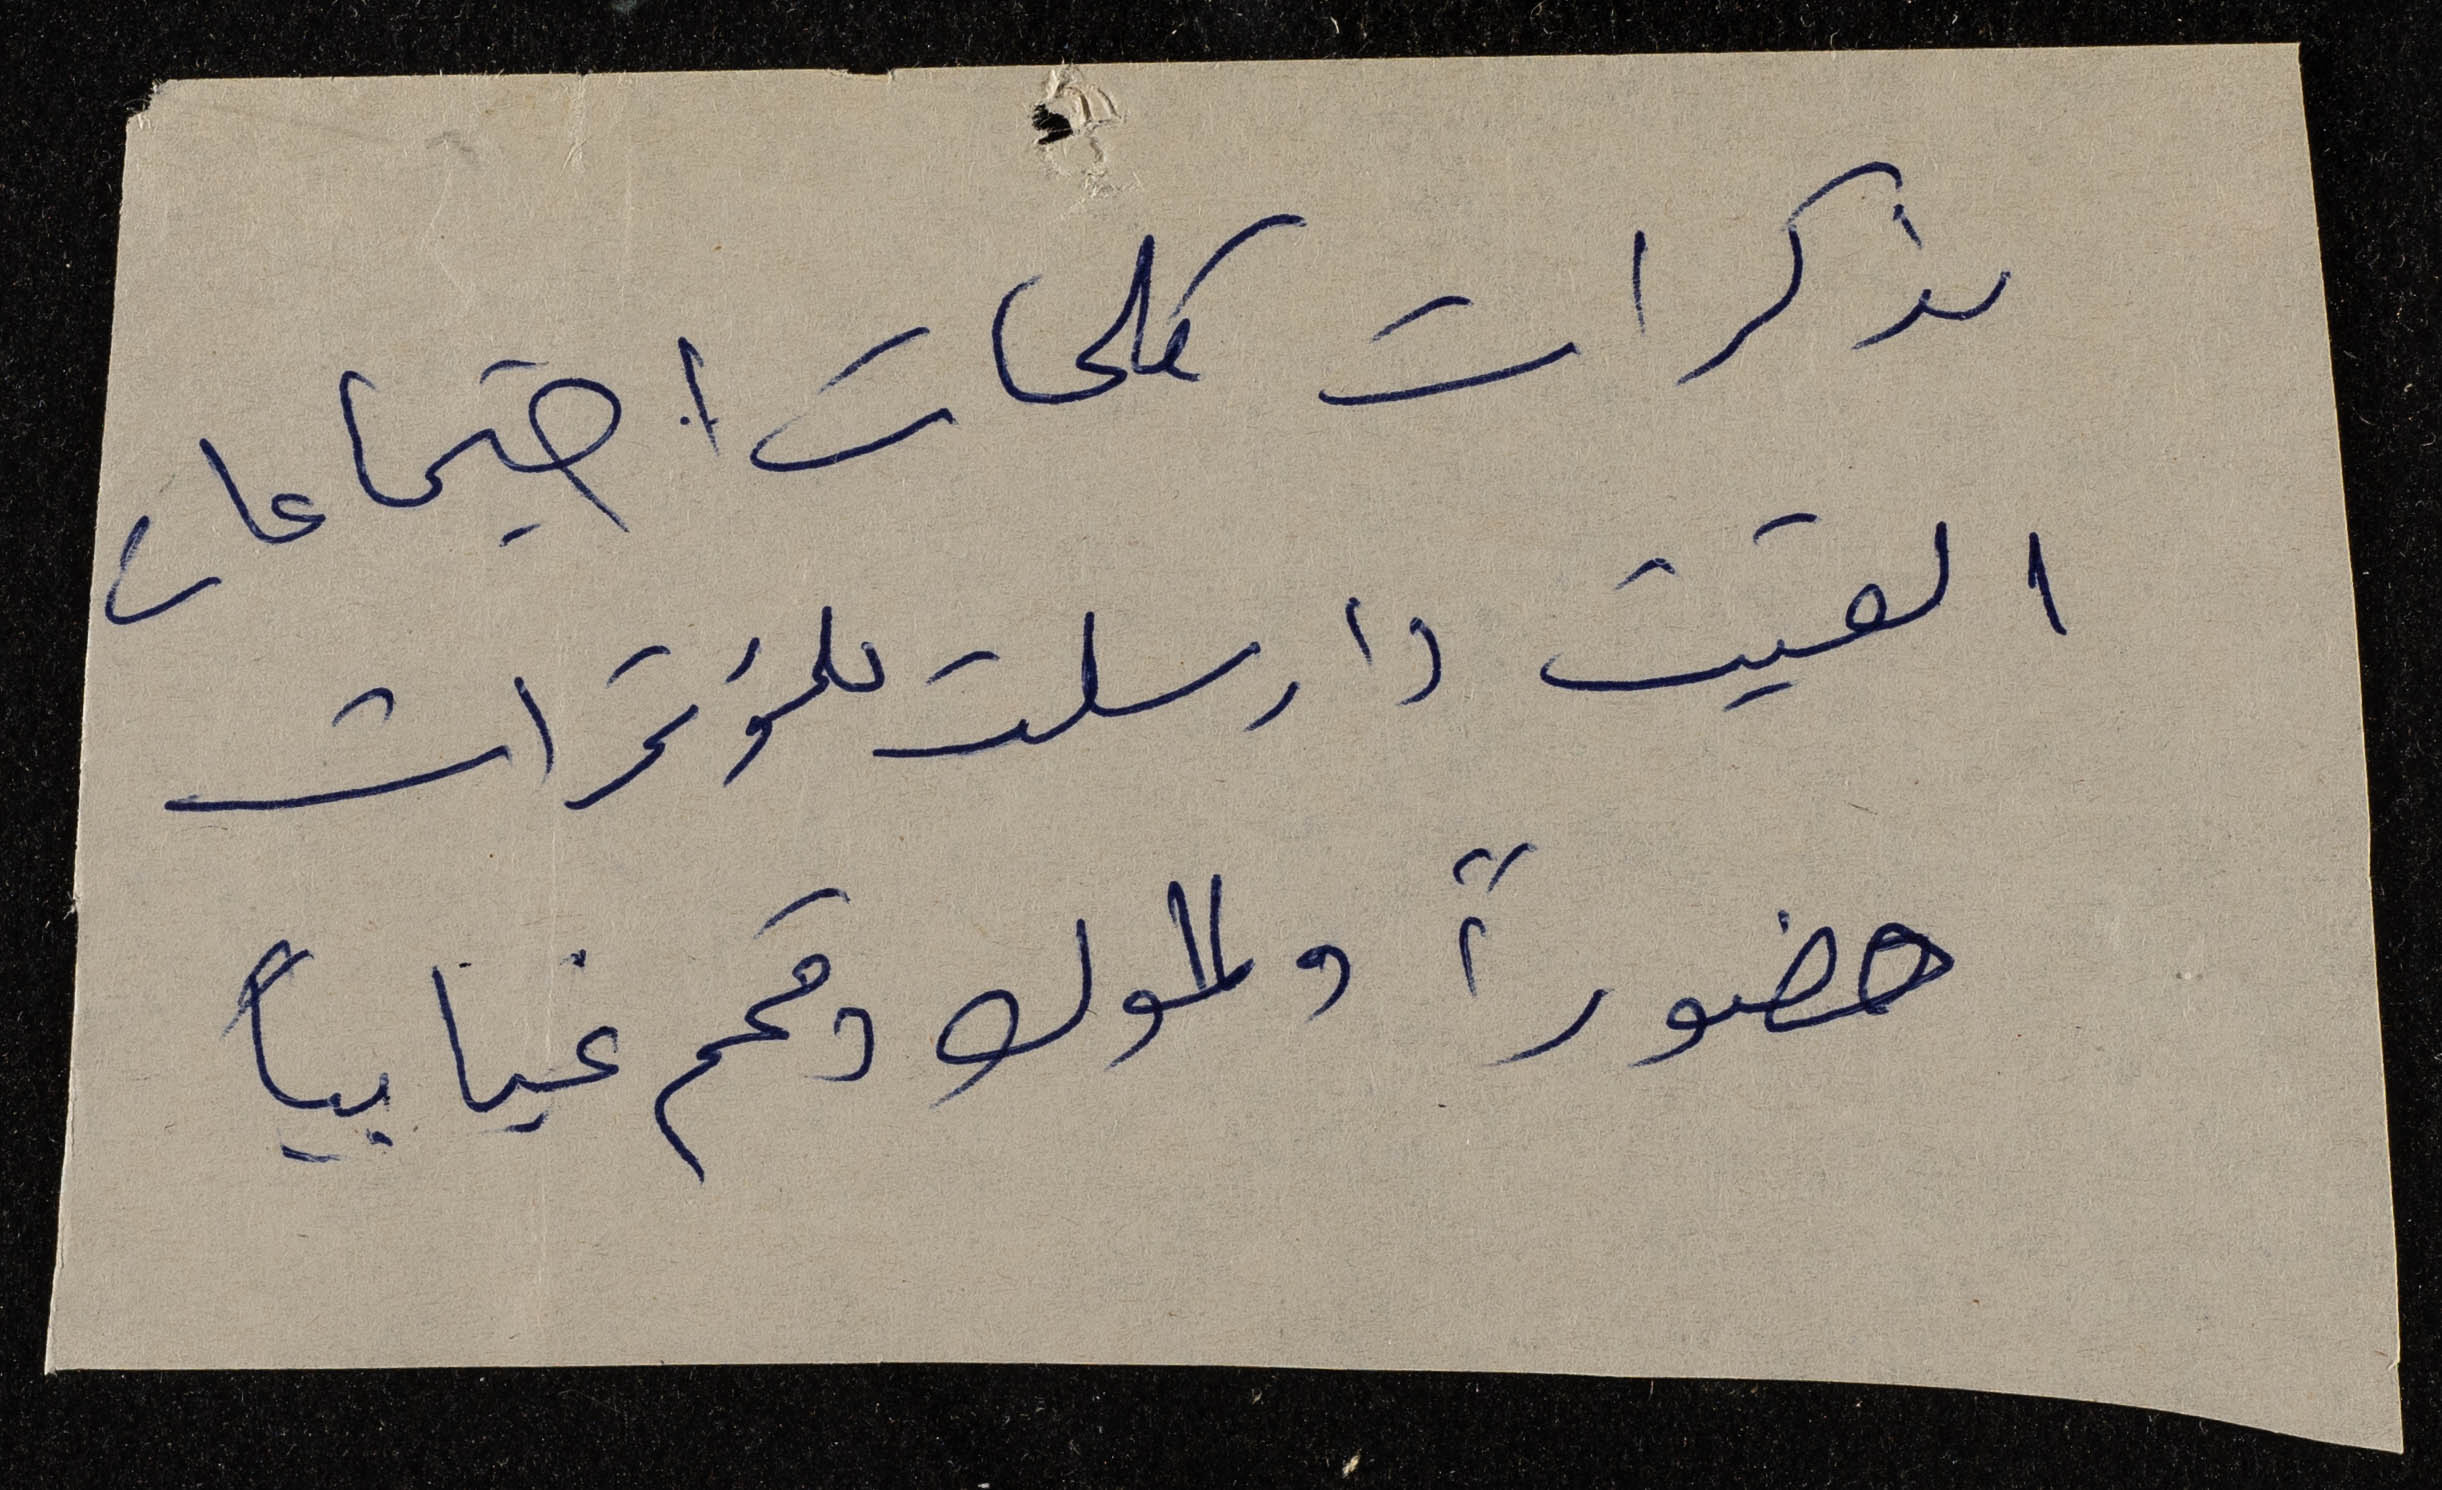 مذكرات كلمات اجتماعات
القيت وارسلت للمؤتمرات
حضوراً والملوك وقمم غيابياً